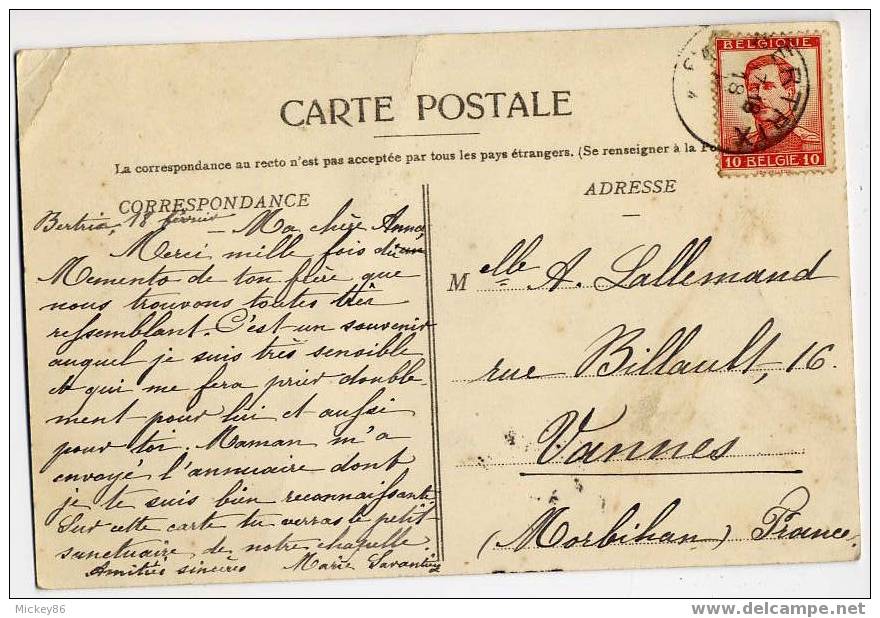 BELGIQUE
ERTRIX
18
10 BELGIE 10
CARTE POSTALE
La correspondance au recto n'est pas acceptée par tous les pays étrangers. (Se renseigner à la Po
CORRESPONDANCE
ADRESSE
Bertrix, 18 février
Ma chère Anna,
Merci mille fois du
Memento de ton frère que
nous trouvons toutes très
ressemblant. C'est un souvenir
auquel je suis très sensible
et qui me fera prier double-
ment pour lui et aussi
pour toi. Maman m'a
envoyé l'annuaire dont
je te suis bien reconnaissante
Sur cette carte tu verras le petit
sanctuaire de notre chapelle
Amitiés sincères Marie
Melle A. Lallemand
rue Billault, 16.
Vannes
(Morbihan) France.
Mickey86
www.delcampe.net